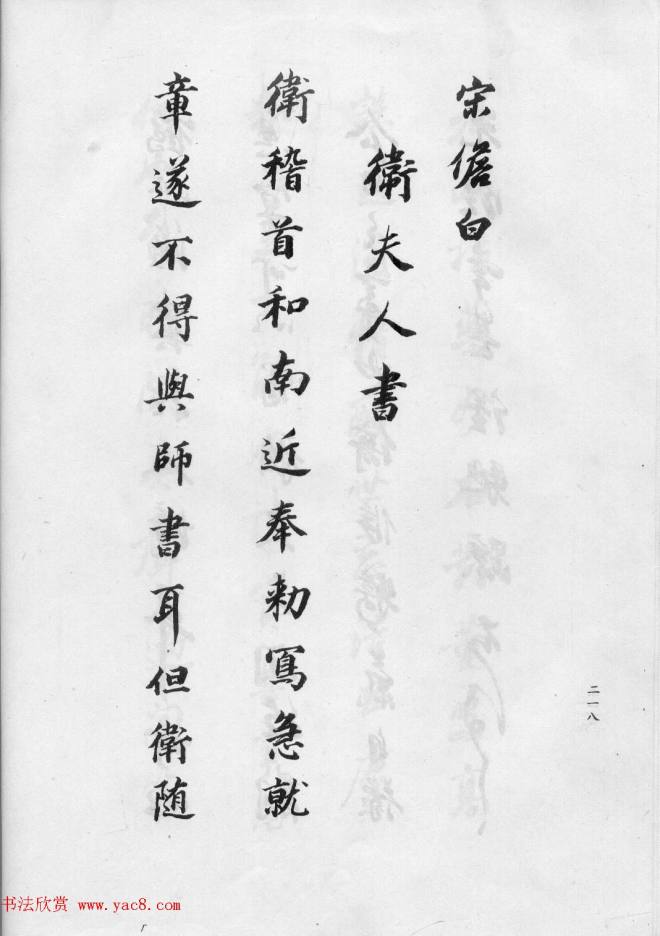 宋儋白
衛夫人書
衛稽首和南近奉勑寫急就
章遂不得與師書耳但衛随
二一八
书法欣赏 www.yac8.com